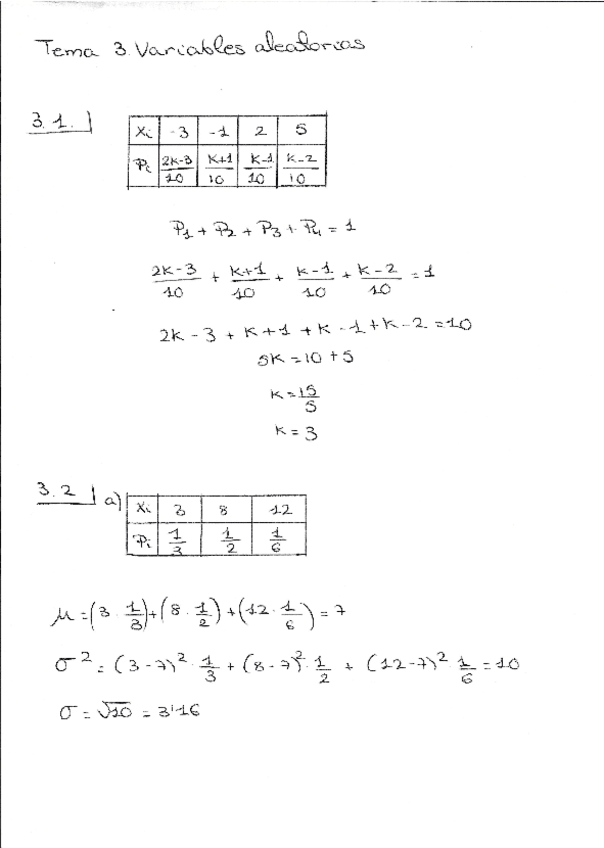 Tema 3. Variables aleatorias
3.1.
Xi -3 -1 2 5
Pi 2K-3/10 K+1/10 K-1/10 K-2/10
P1 + P2 + P3 + P4 = 1
2K-3/10 + K+1/10 + K-1/10 + K-2/10 = 1
2K - 3 + K + 1 + K - 1 + K - 2 = 10
5K = 10 + 5
K = 15/5
K = 3
3.2 a)
Xi 3 8 12
Pi 1/3 1/2 1/6
μ = (3 · 1/3) + (8 · 1/2) + (12 · 1/6) = 7
σ² = (3-7)² · 1/3 + (8-7)² · 1/2 + (12-7)² · 1/6 = 10
σ = √10 = 3'16